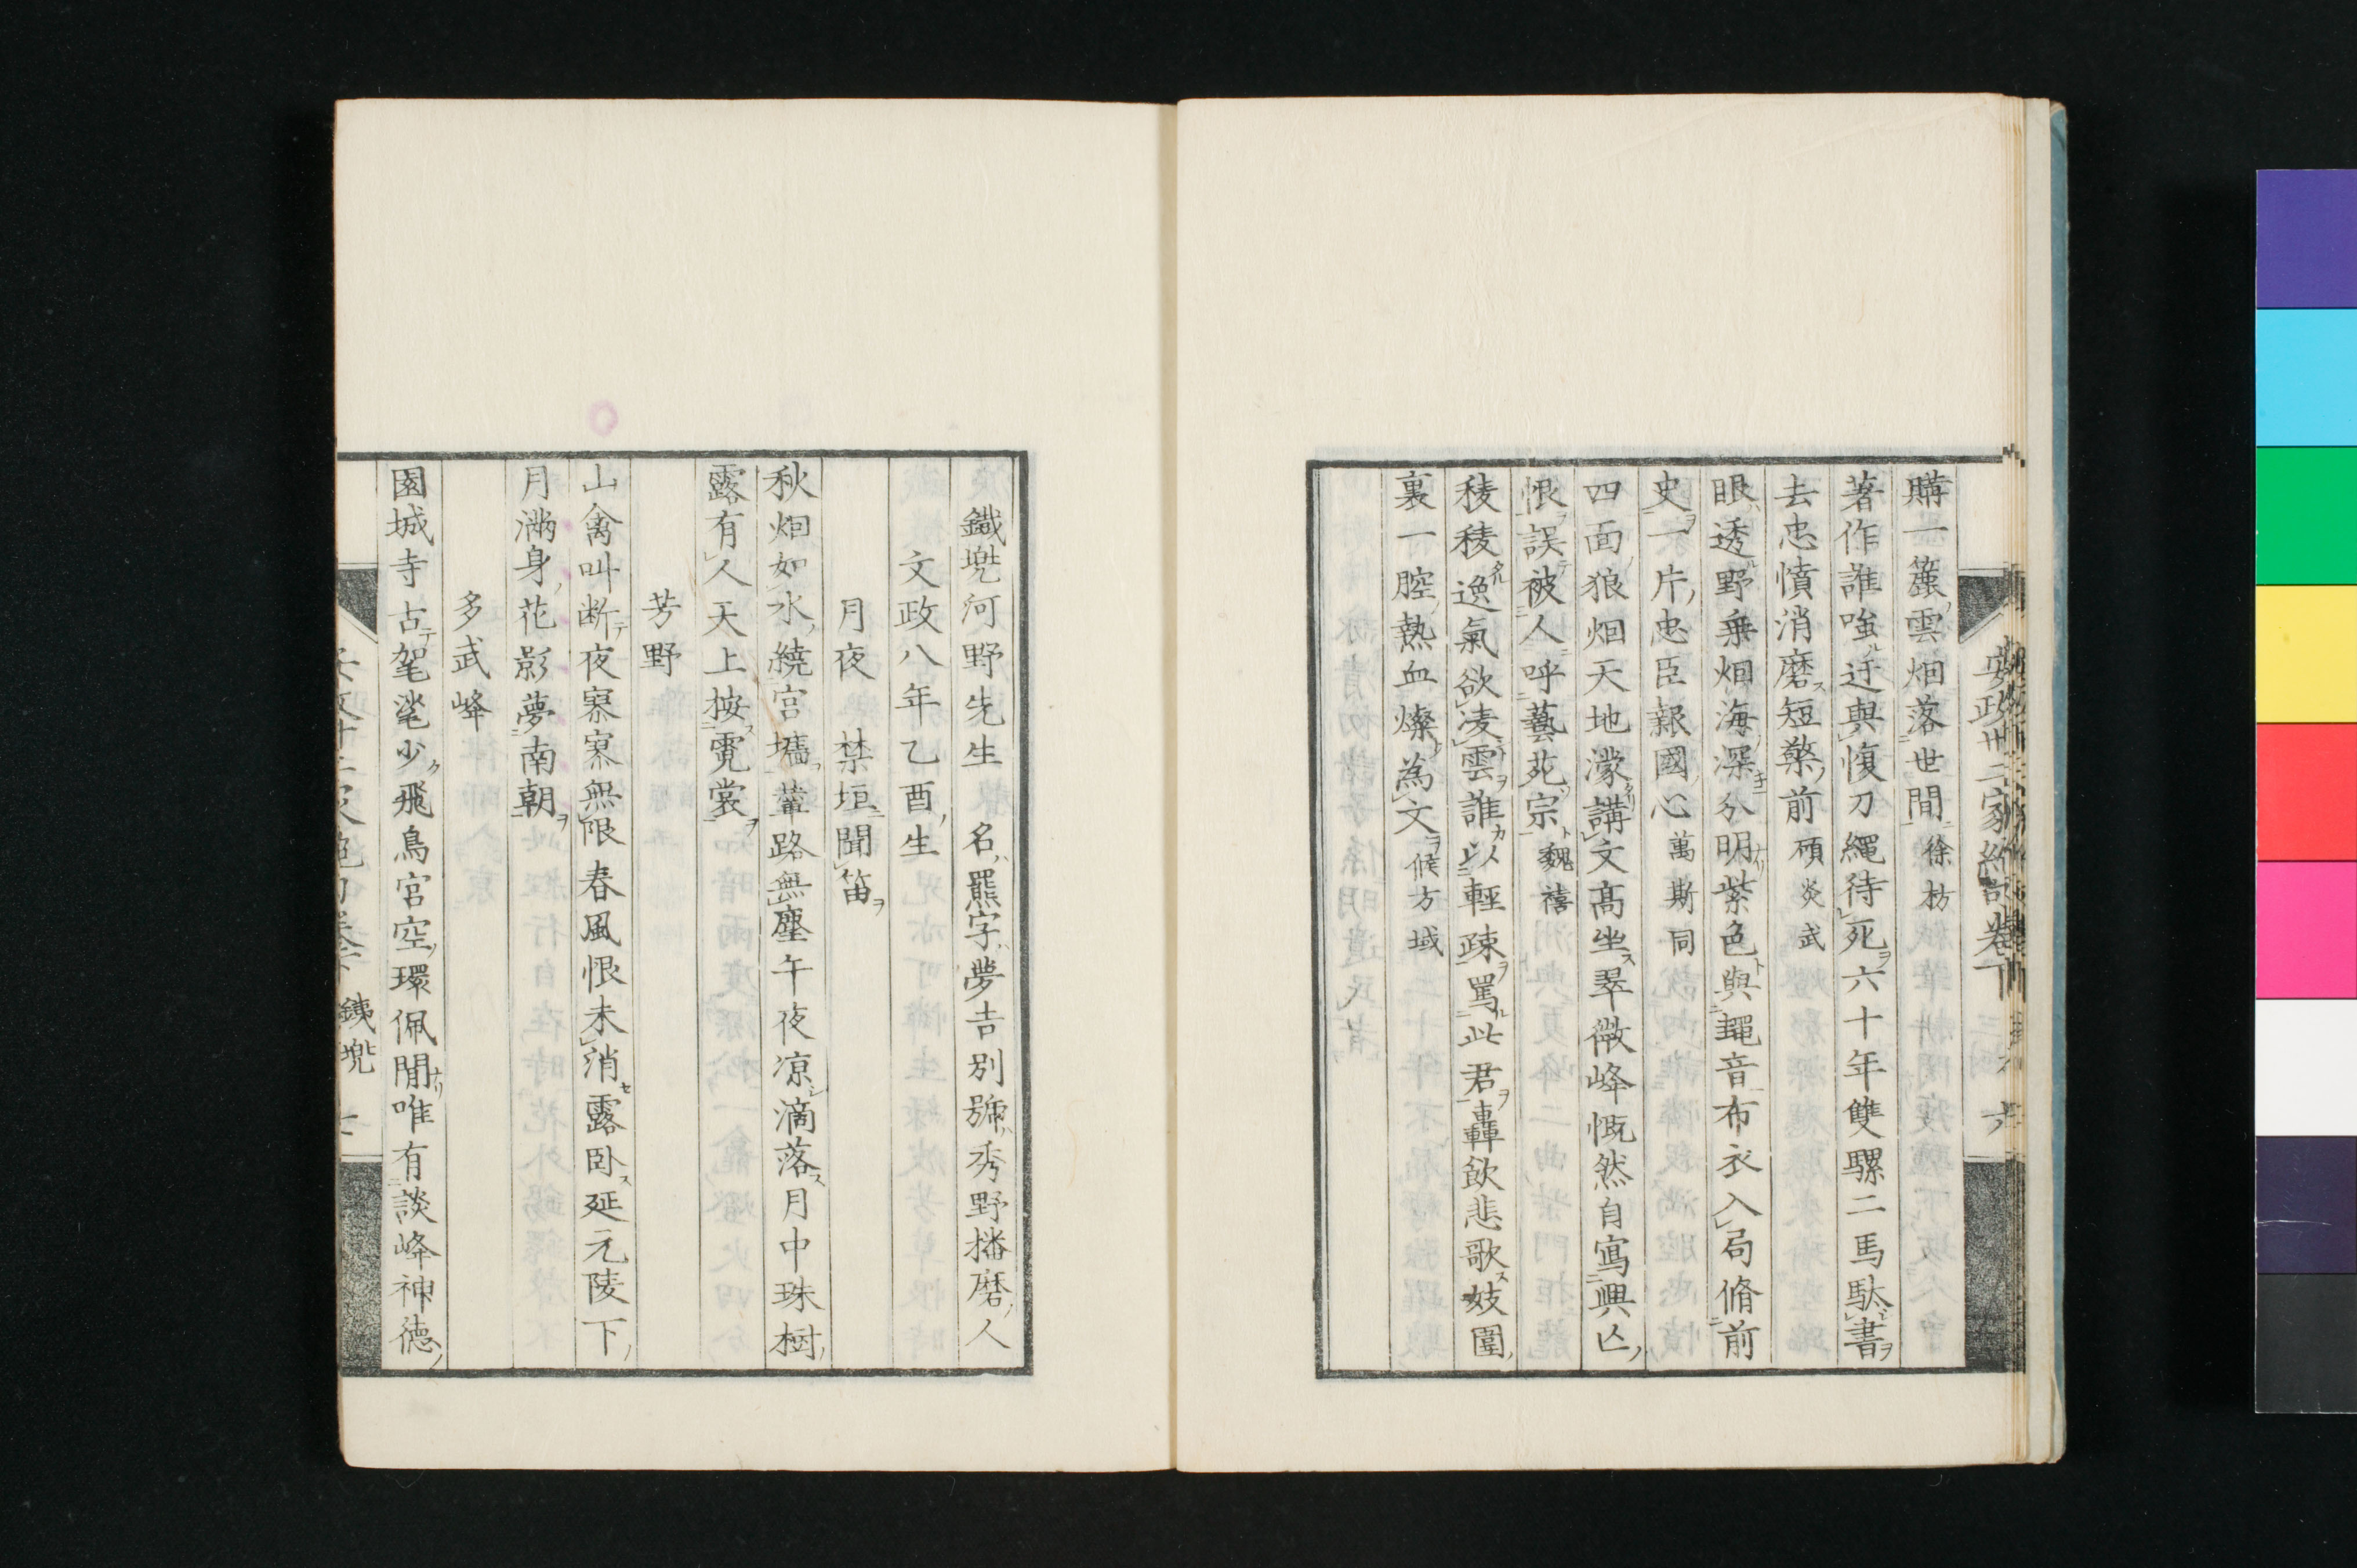 購一簏雲烟落世間徐枋
著作誰嗤迂與愎刀繩待死六十年雙騾二馬馱書
去忠憤消磨短檠前顧炎武
眼透野乗烟海深分明紫色與蠅音布衣入局脩前
史一片忠臣報國心萬斯同
四面狼烟天地濛講文髙坐翠微峰慨然自寫興亡
恨誤被人呼藝苑宗魏禧
稜稜逸氣欲凌雲誰以輕踈罵此君轟飲悲歌妓圍
裏一腔熱血燦為文候方域
鐵兠河野先生 名羆字夢吉別號秀野播磨人
文政八年乙酉生
月夜 禁垣聞笛
秋烟如水繞宮墻輦路無塵午夜凉滴落月中珠樹
露有人天上按霓裳
芳野
山禽叫断夜寥寥無限春風恨未消露卧延元陵下
月滿身花影夢南朝
多武峰
園城寺古毣毣少飛鳥宮空環佩閒唯有談峰神德
鐵兠